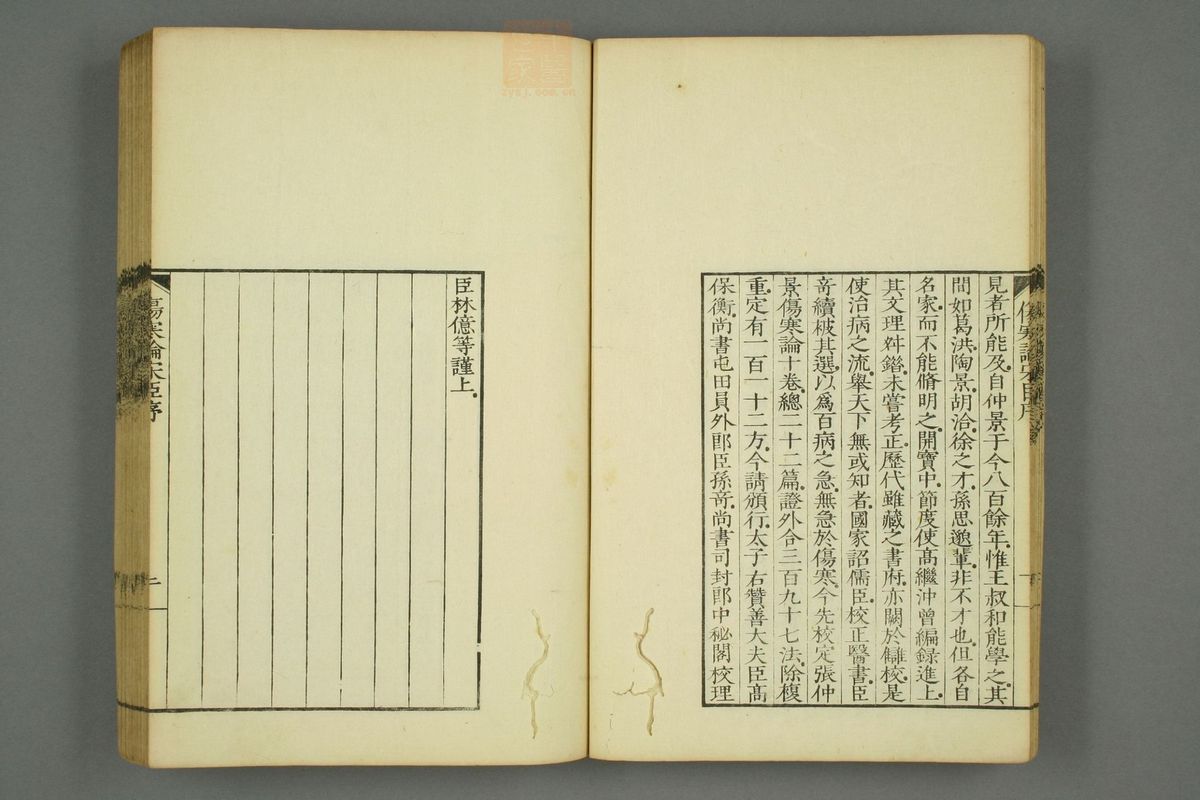 傷寒論宋臣序
見者所能及。自仲景于今八百餘年。惟王叔和能學之。其
間如葛洪。陶景。胡洽。徐之才。孫思邈輩。非不才也。但各自
名家。而不能脩明之。開寶中。節度使高繼沖曾編錄進上。
其文理舛錯。未嘗考正。歷代雖藏之書府。亦闕於讎校。是
使治病之流。舉天下無或知者。國家詔儒臣。校正醫書。臣
奇續被其選。以爲百病之急。無急於傷寒。今先校定張仲
景傷寒論十卷。總二十二篇。證外合三百九十七法。除複
重。定有一百一十二方。今請頒行。太子右贊善大夫臣高
保衡。尚書屯田員外郎臣孫奇。尚書司封郎中秘閣校理
臣林億等謹上。
傷寒論宋臣序
二
zysj.com.cn